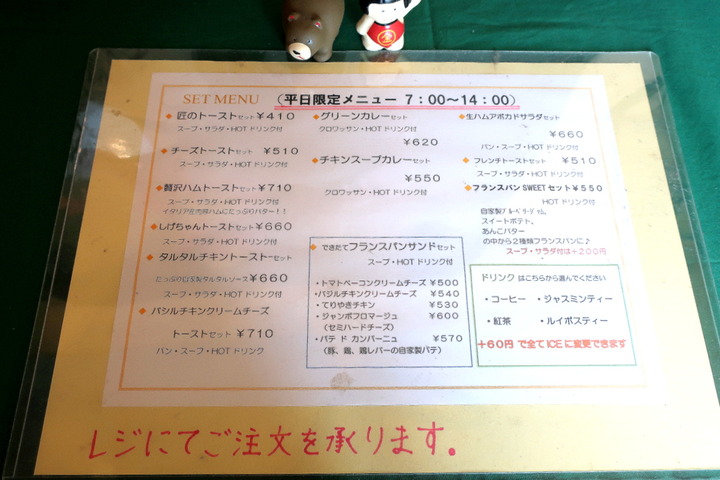 SET MENU (平日限定メニュー 7:00~14:00)
◆匠のトーストセット ¥410
スープ・サラダ・HOTドリンク付
◆チーズトーストセット ¥510
スープ・サラダ・HOTドリンク付
◆贅沢ハムトーストセット ¥710
スープ・サラダ・HOTドリンク付
イタリア産肉厚ハムにたっぷりバター!!
◆しげちゃんトーストセット ¥660
スープ・サラダ・HOTドリンク付
◆タルタルチキントーストーセット
たっぷり自家製タルタルソース ¥660
スープ・サラダ・HOTドリンク付
◆バジルチキンクリームチーズ
トーストセット ¥710
パン・スープ・HOTドリンク
◆グリーンカレーセット
クロワッサン・HOTドリンク付
¥620
◆チキンスープカレーセット
¥550
クロワッサン・HOTドリンク付
◆できたてフランスパンサンドセット
スープ・HOTドリンク付
・トマトベーコンクリームチーズ ¥500
・バジルチキンクリームチーズ ¥540
・てりやきチキン ¥530
・ジャンボフロマージュ ¥600
(セミハードチーズ)
・パテ ド カンパーニュ ¥570
(豚、鶏、鶏レバーの自家製パテ)
◆生ハムアボカドサラダセット
¥660
パン・スープ・HOTドリンク付
◆フレンチトーストセット ¥510
スープ・サラダ・HOTドリンク付
◆フランスパンSWEETセット¥550
HOTドリンク付
自家製ブルーベリージャム。
スイートポテト、
あんこバター
の中から2種類フランスパンに♪
スープ・サラダ付は+200円
ドリンク はこちらから選んでください
・コーヒー ・ジャスミンティー
・紅茶 ・ルイボスティー
+60円 で全てICEに変更できます
レジにてご注文を承ります。